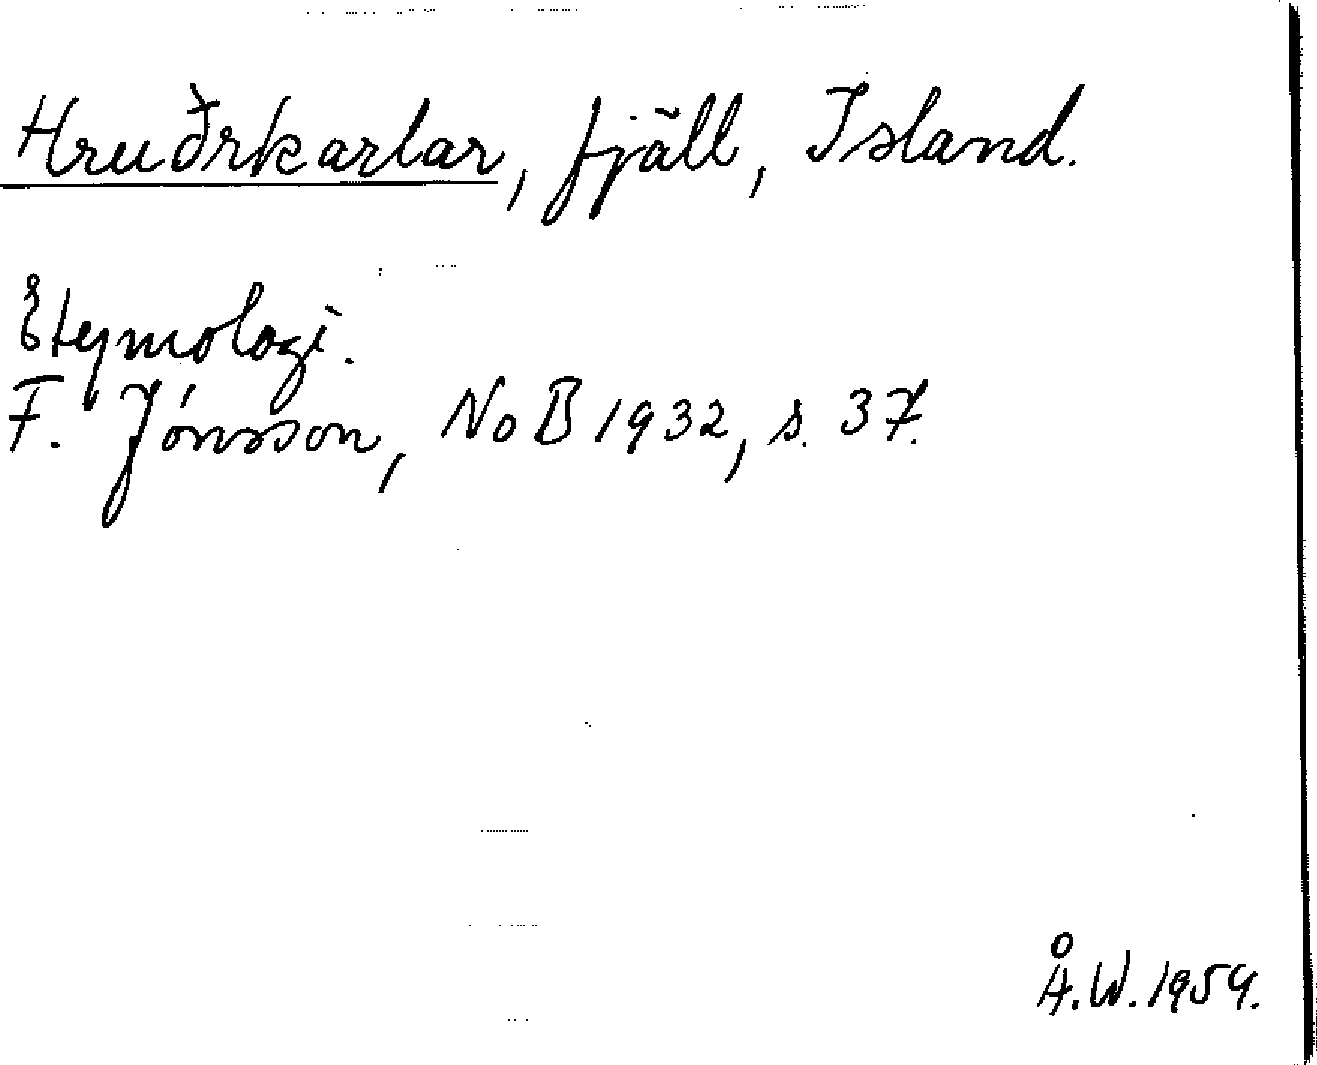 Hruðrkarlar, fjäll, Island.
Etymologi.
F. Jónsson, NoB 1932, s. 37.
Å.W. 1954.